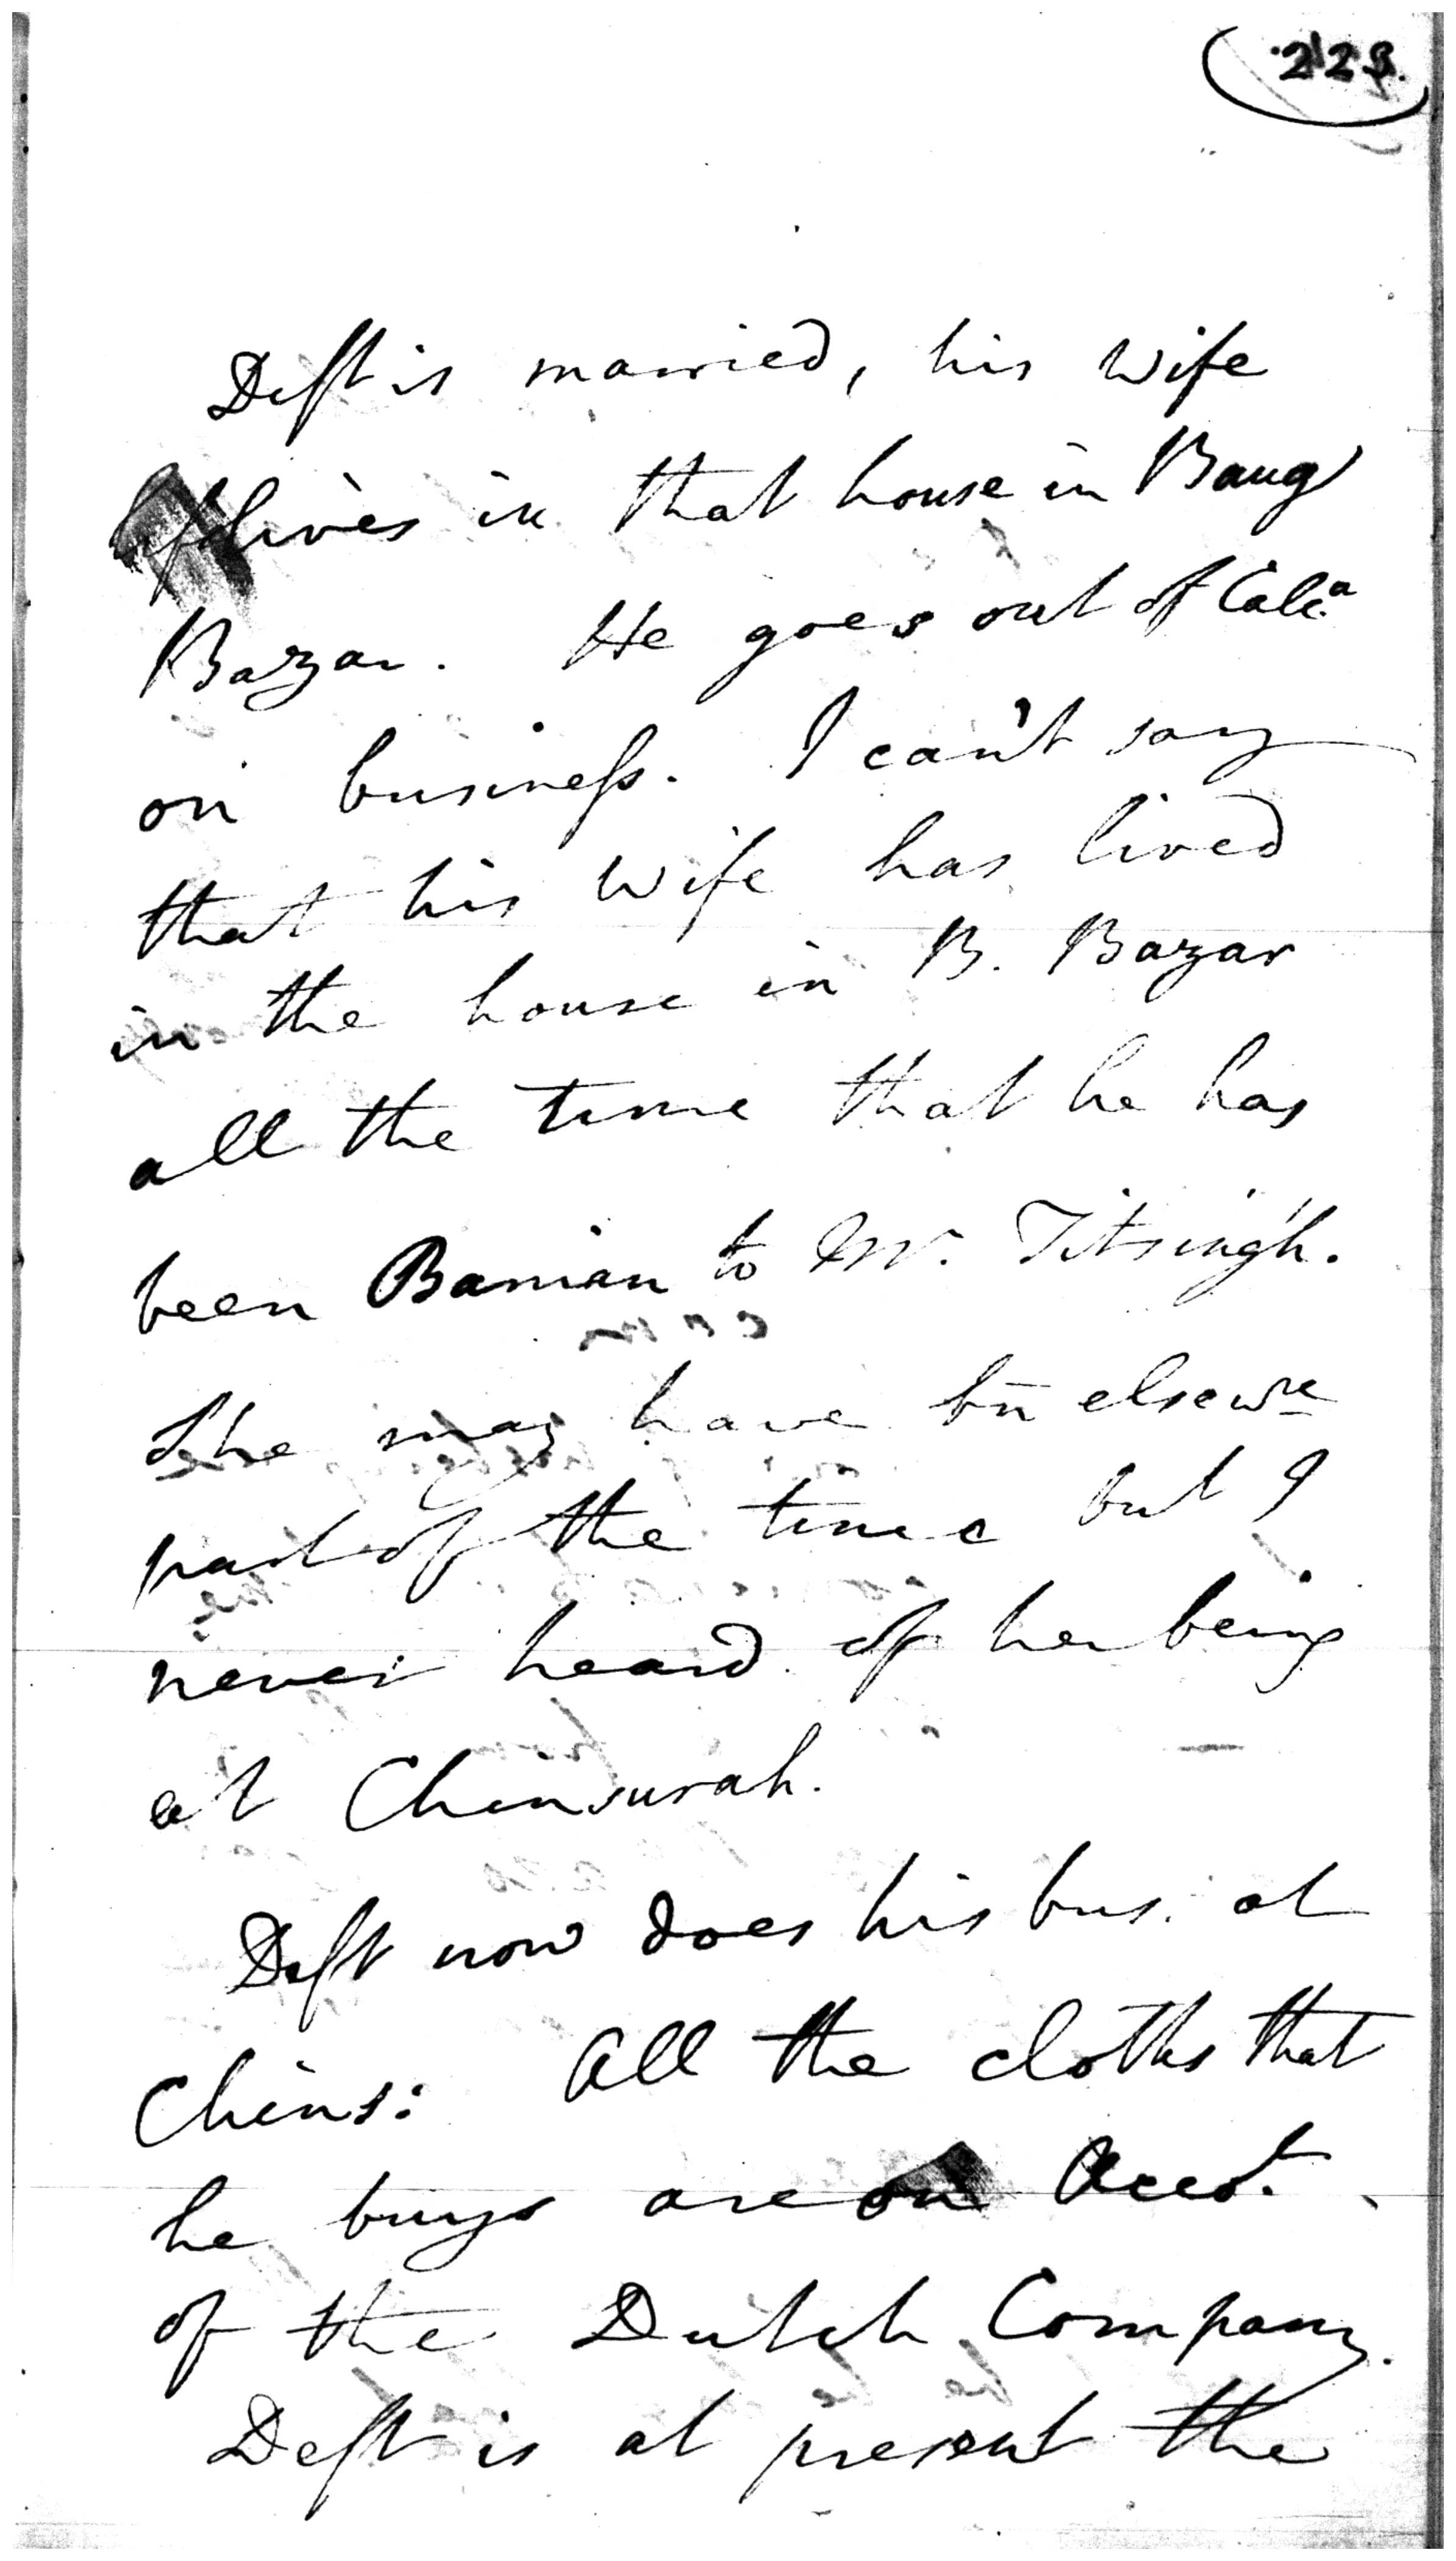 223.
Deft is married, his wife
lives in that house in Baug
Bazar. He goes out of Calc.a
on business. I can't say
that his wife has lived
in the house in B. Bazar
all the time that he has
been Banian to Mr. Titsingh.
She may have bn elsewre
part of the time but I
never heard of her being
at Chinsurah.
Deft now does his bus. at
Chins: All the cloths that
he buys are on Acco.t
of the Dutch Company.
Deft is at present the